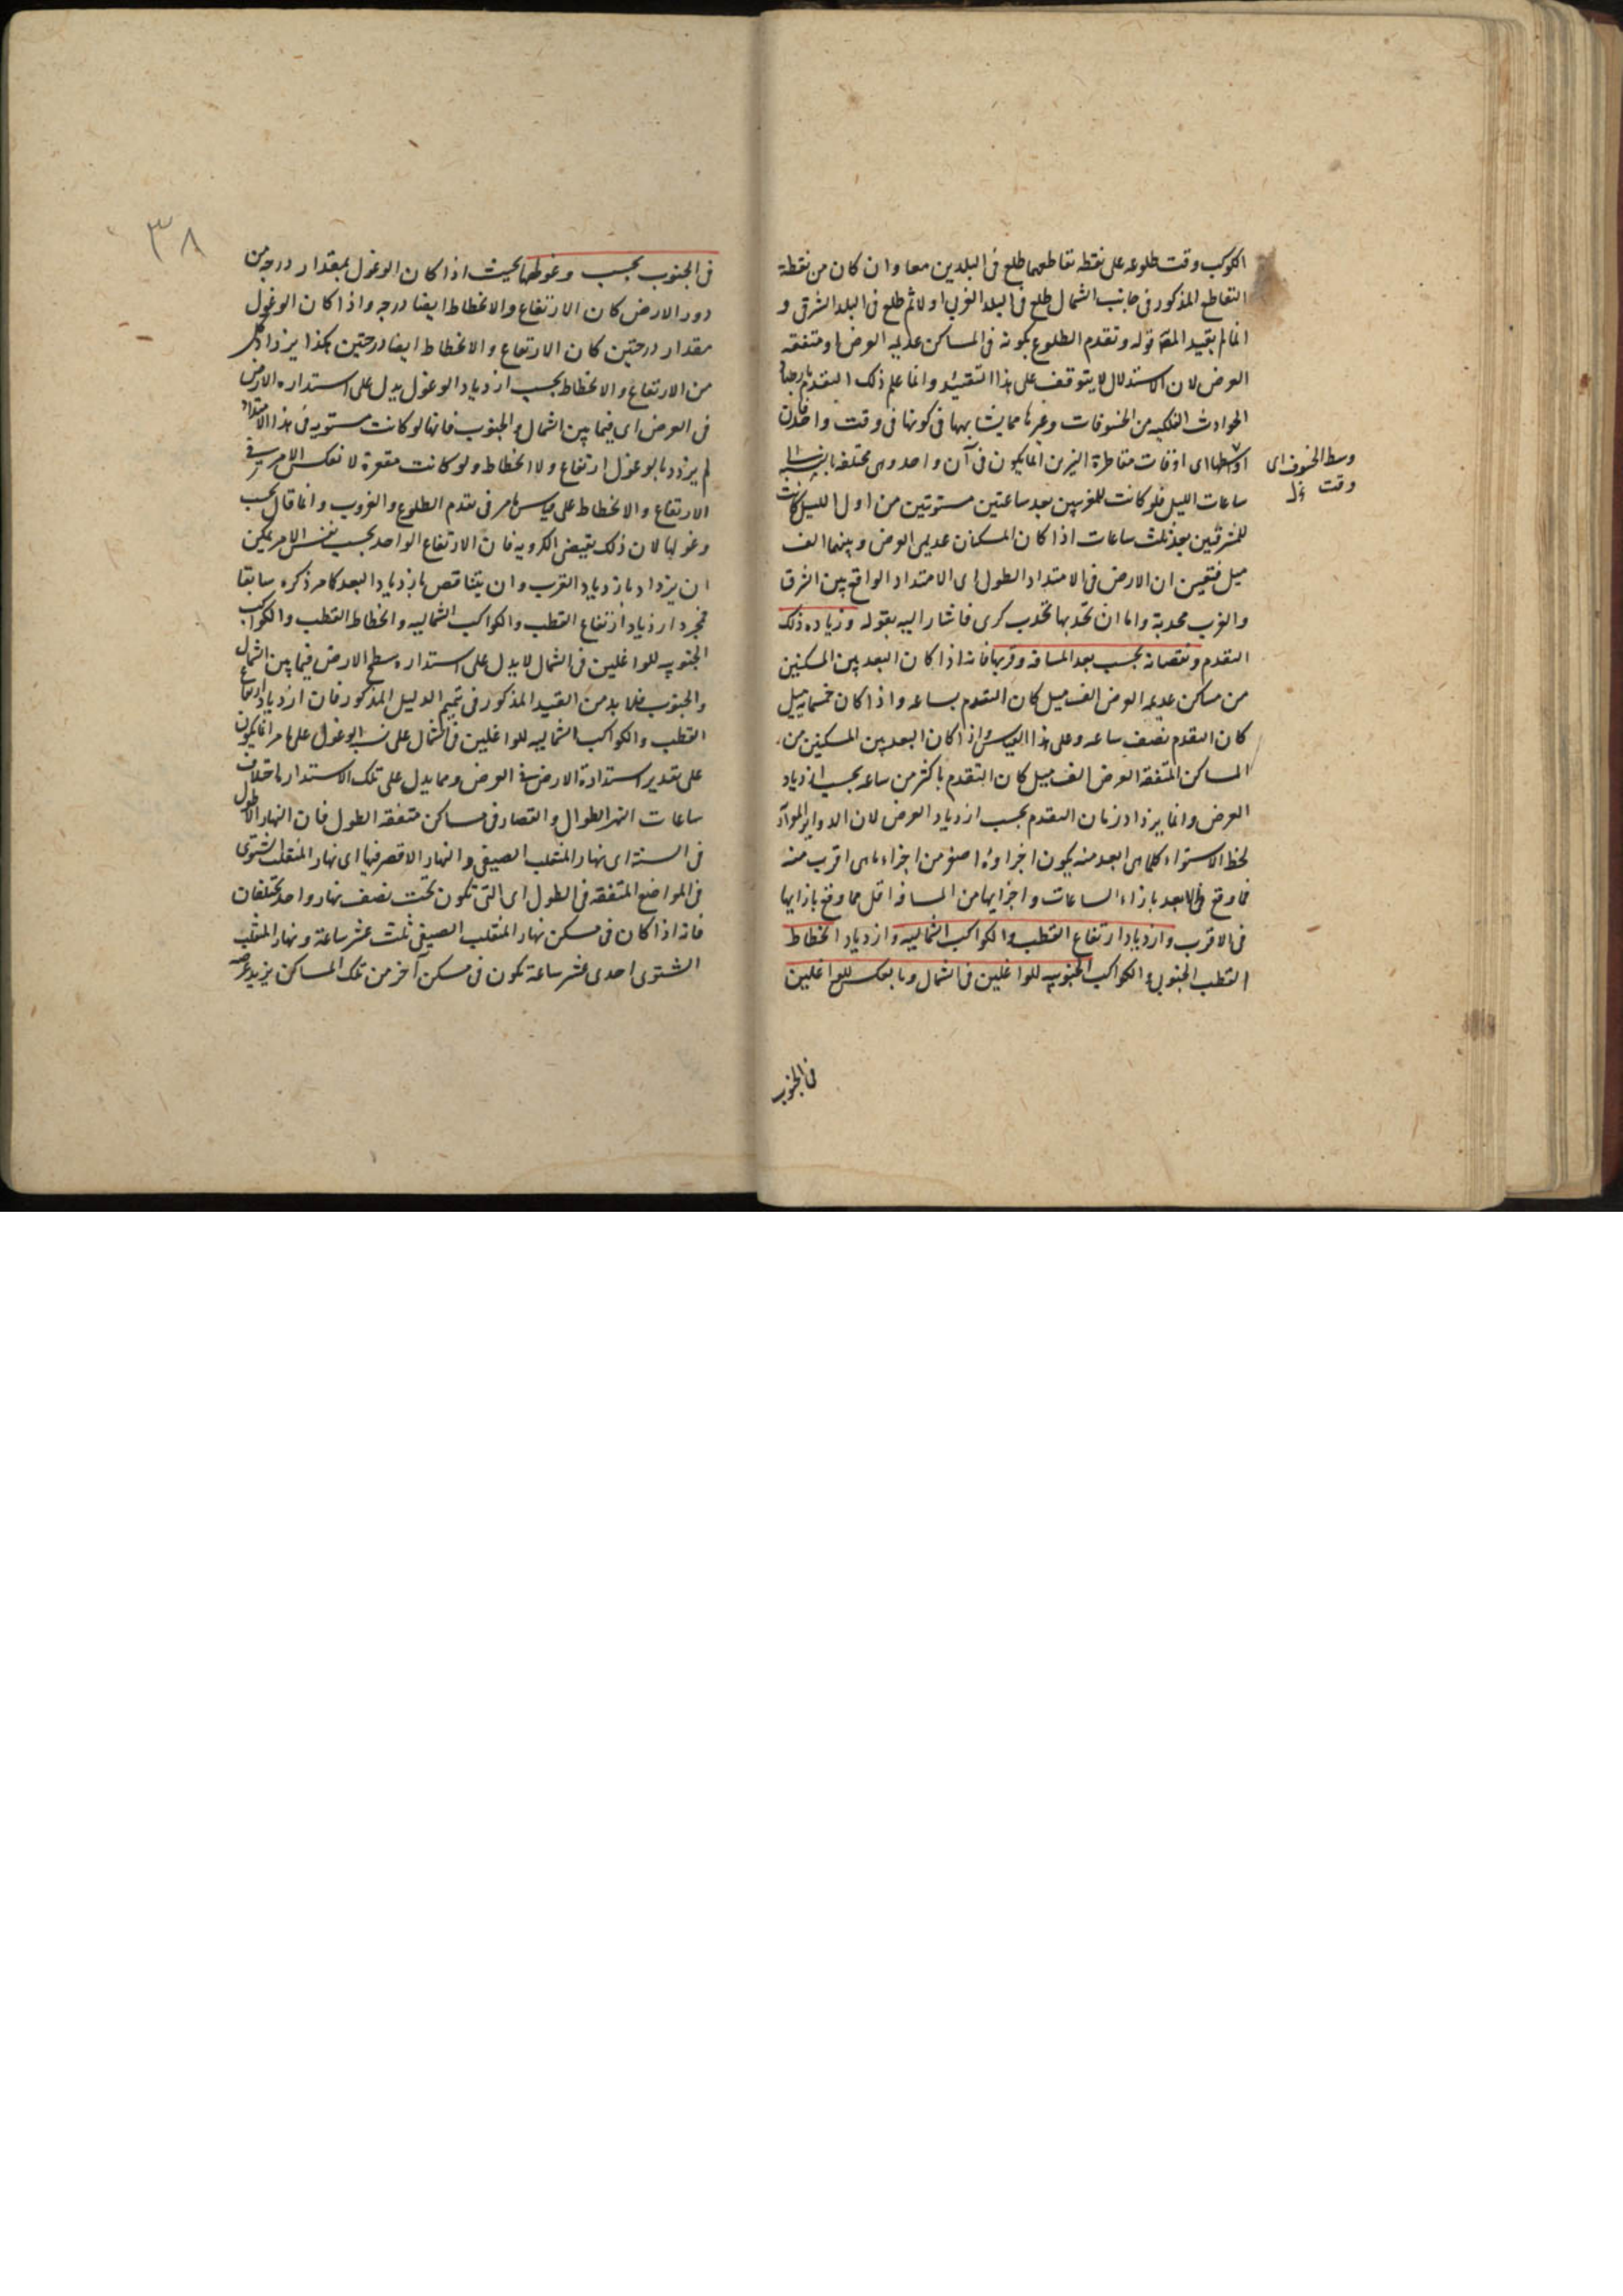 الكوكب وقت طلوعه على نقطه تقاطعهما طلع فى البلدين معا وان كان من نقطة
التقاطع المذكور فى جانب الشمال طلع فى البلد الغربى اولا ثم طلع فى البلد الشرقى و
انما لم يقيد المصَ قوله وتقدم الطلوع بكونه فى المساكن عديمه العرض او متفقه
العرض لان الاستدلال لا يتوقف على هذا التقييد وانما علم ذلك التقدم بارصاد
الحوادث الفلكيه من الخسوفات وغيرها مما يشابهها فى كونها فى وقت واحد فان
اوساطها اى اوقات مقاطرة النيرين انما يكون فى آن واحد وهى مختلفه بالنسبه الى
وسط الخسوف اى
وقت
ساعات الليل فلو كانت للغربيين بعد ساعتين مستويتين من اول الليل كانت
للمشرقيين بعد ثلث ساعات اذا كان المسكنان عديمى العرض وبينهما الف
ميل فتعين ان الارض فى الامتداد الطولى اى الامتداد الواقع بين الشرق
والغرب محدبة واما ان تحدبها تحدب كرى فاشار اليه بقوله وزياده ذلك
التقدم ونقصانه بحسب بعد المسافه وقربها فانه اذا كان البعد بين المسكنين
من مساكن عديمه العرض الف ميل كان التقدم بساعه واذا كان خمسمايه ميل
كان التقدم نصف ساعه وعلى هذا القياس واذا كان البعد بين المسكنين من
المساكن المتفقه العرض الف ميل كان التقدم باكثر من ساعه بحسب ازدياد
العرض وانما يزداد زمان التقدم بحسب ازدياد العرض لان الدواير الموازية
لخط الاستواء كلما هى ابعد منه يكون اجزاؤه اصغر من اجزاء ما هى اقرب منه
فما وقع فى الابعد بازاء الساعات واجزايها من المسافه اقل مما وقع بازايها
فى الاقرب وازدياد ارتفاع القطب والكواكب الشماليه وازدياد انحطاط
القطب الجنوبى والكواكب الجنوبيه للواغلين فى الشمال وبالعكس للواغلين
فى الجنوب
٣٨
فى الجنوب بحسب وغولهما بحيث اذا كان الوغول بمقدار درجه من
دور الارض كان الارتفاع والانحطاط ايضا درجه واذا كان الوغول
مقدار درجتين كان الارتفاع والانحطاط ايضا درجتين هكذا يزداد كل
من الارتفاع والانحطاط بحسب ازدياد الوغول يدل على استداره الارض
فى العرض اى فيما بين الشمال والجنوب فانها لو كانت مستويه فى هذا الامتداد
لم يزدد بالوغول ارتفاع ولا انحطاط ولو كانت مقعرة لانعكس الامر فى
الارتفاع والانحطاط على قياس ما مر فى تقدم الطلوع والغروب وانما قال بحسب
وغولها لان ذلك يقتضى الكرويه فان الارتفاع الواحد بحسب نفس الامر يمكن
ان يزداد بازدياد القرب وان يتناقص بازدياد البعد كما مر ذكره سابقا
فمجرد ازدياد ارتفاع القطب والكواكب الشماليه وانحطاط القطب والكواكب
الجنوبيه للواغلين فى الشمال لا يدل على استداره سطح الارض فيما بين الشمال
والجنوب فلا بد من القيد المذكور فى تتميم الدليل المذكور فان ازدياد ارتفاع
القطب والكواكب الشماليه للواغلين فى الشمال على نسب الوغول على ما مر انما يكون
على تقدير استدارة الارض فى العرض ومما يدل على تلك الاستداره اختلاف
ساعات النهر الطوال والقصار فى مساكن متفقه الطول فان النهار الاطول
فى السنة اى نهار المنقلب الصيفى والنهار الاقصر فيها اى نهار المنقلب الشتوى
فى المواضع المتفقه فى الطول اى التى تكون تحت نصف نهار واحد يختلفان
فانه اذا كان فى مسكن نهار المنقلب الصيفى ثلث عشر ساعة ونهار المنقلب
الشتوى احدى عشر ساعة تكون فى مسكن آخر من تلك المساكن يزيد عرضه